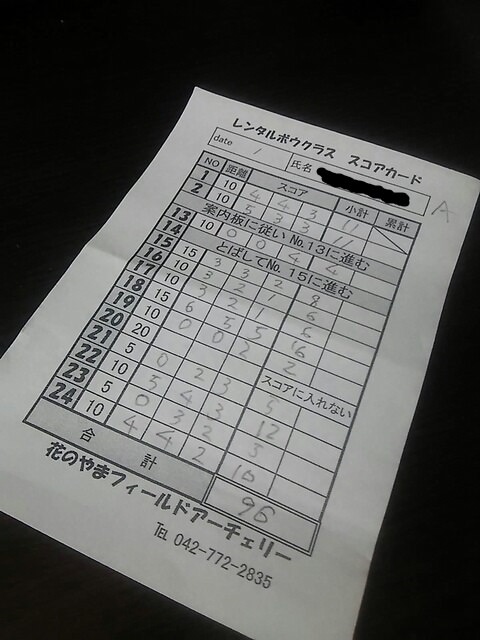 レンタルボウクラス スコアカード
date / 氏名 A
NO 距離 スコア 小計 累計
1 10 4 4 3 11
2 10 5 3 3 11
案内板に従い No.13に進む
13 10 0 0 4 4
14 とばして No. 15に進む
15 15 3 3 2 8
16 10 3 2 1 6
17 10 3 2 1 6
18 15 6 5 5 16
19 10 0 0 2 2
20 20 スコアに入れない
21 5 0 2 3 5
22 10 5 4 3 12
23 5 0 3 2 5
24 10 4 4 2 10
合計 96
花のやまフィールドアーチェリー
TEL 042-772-2835